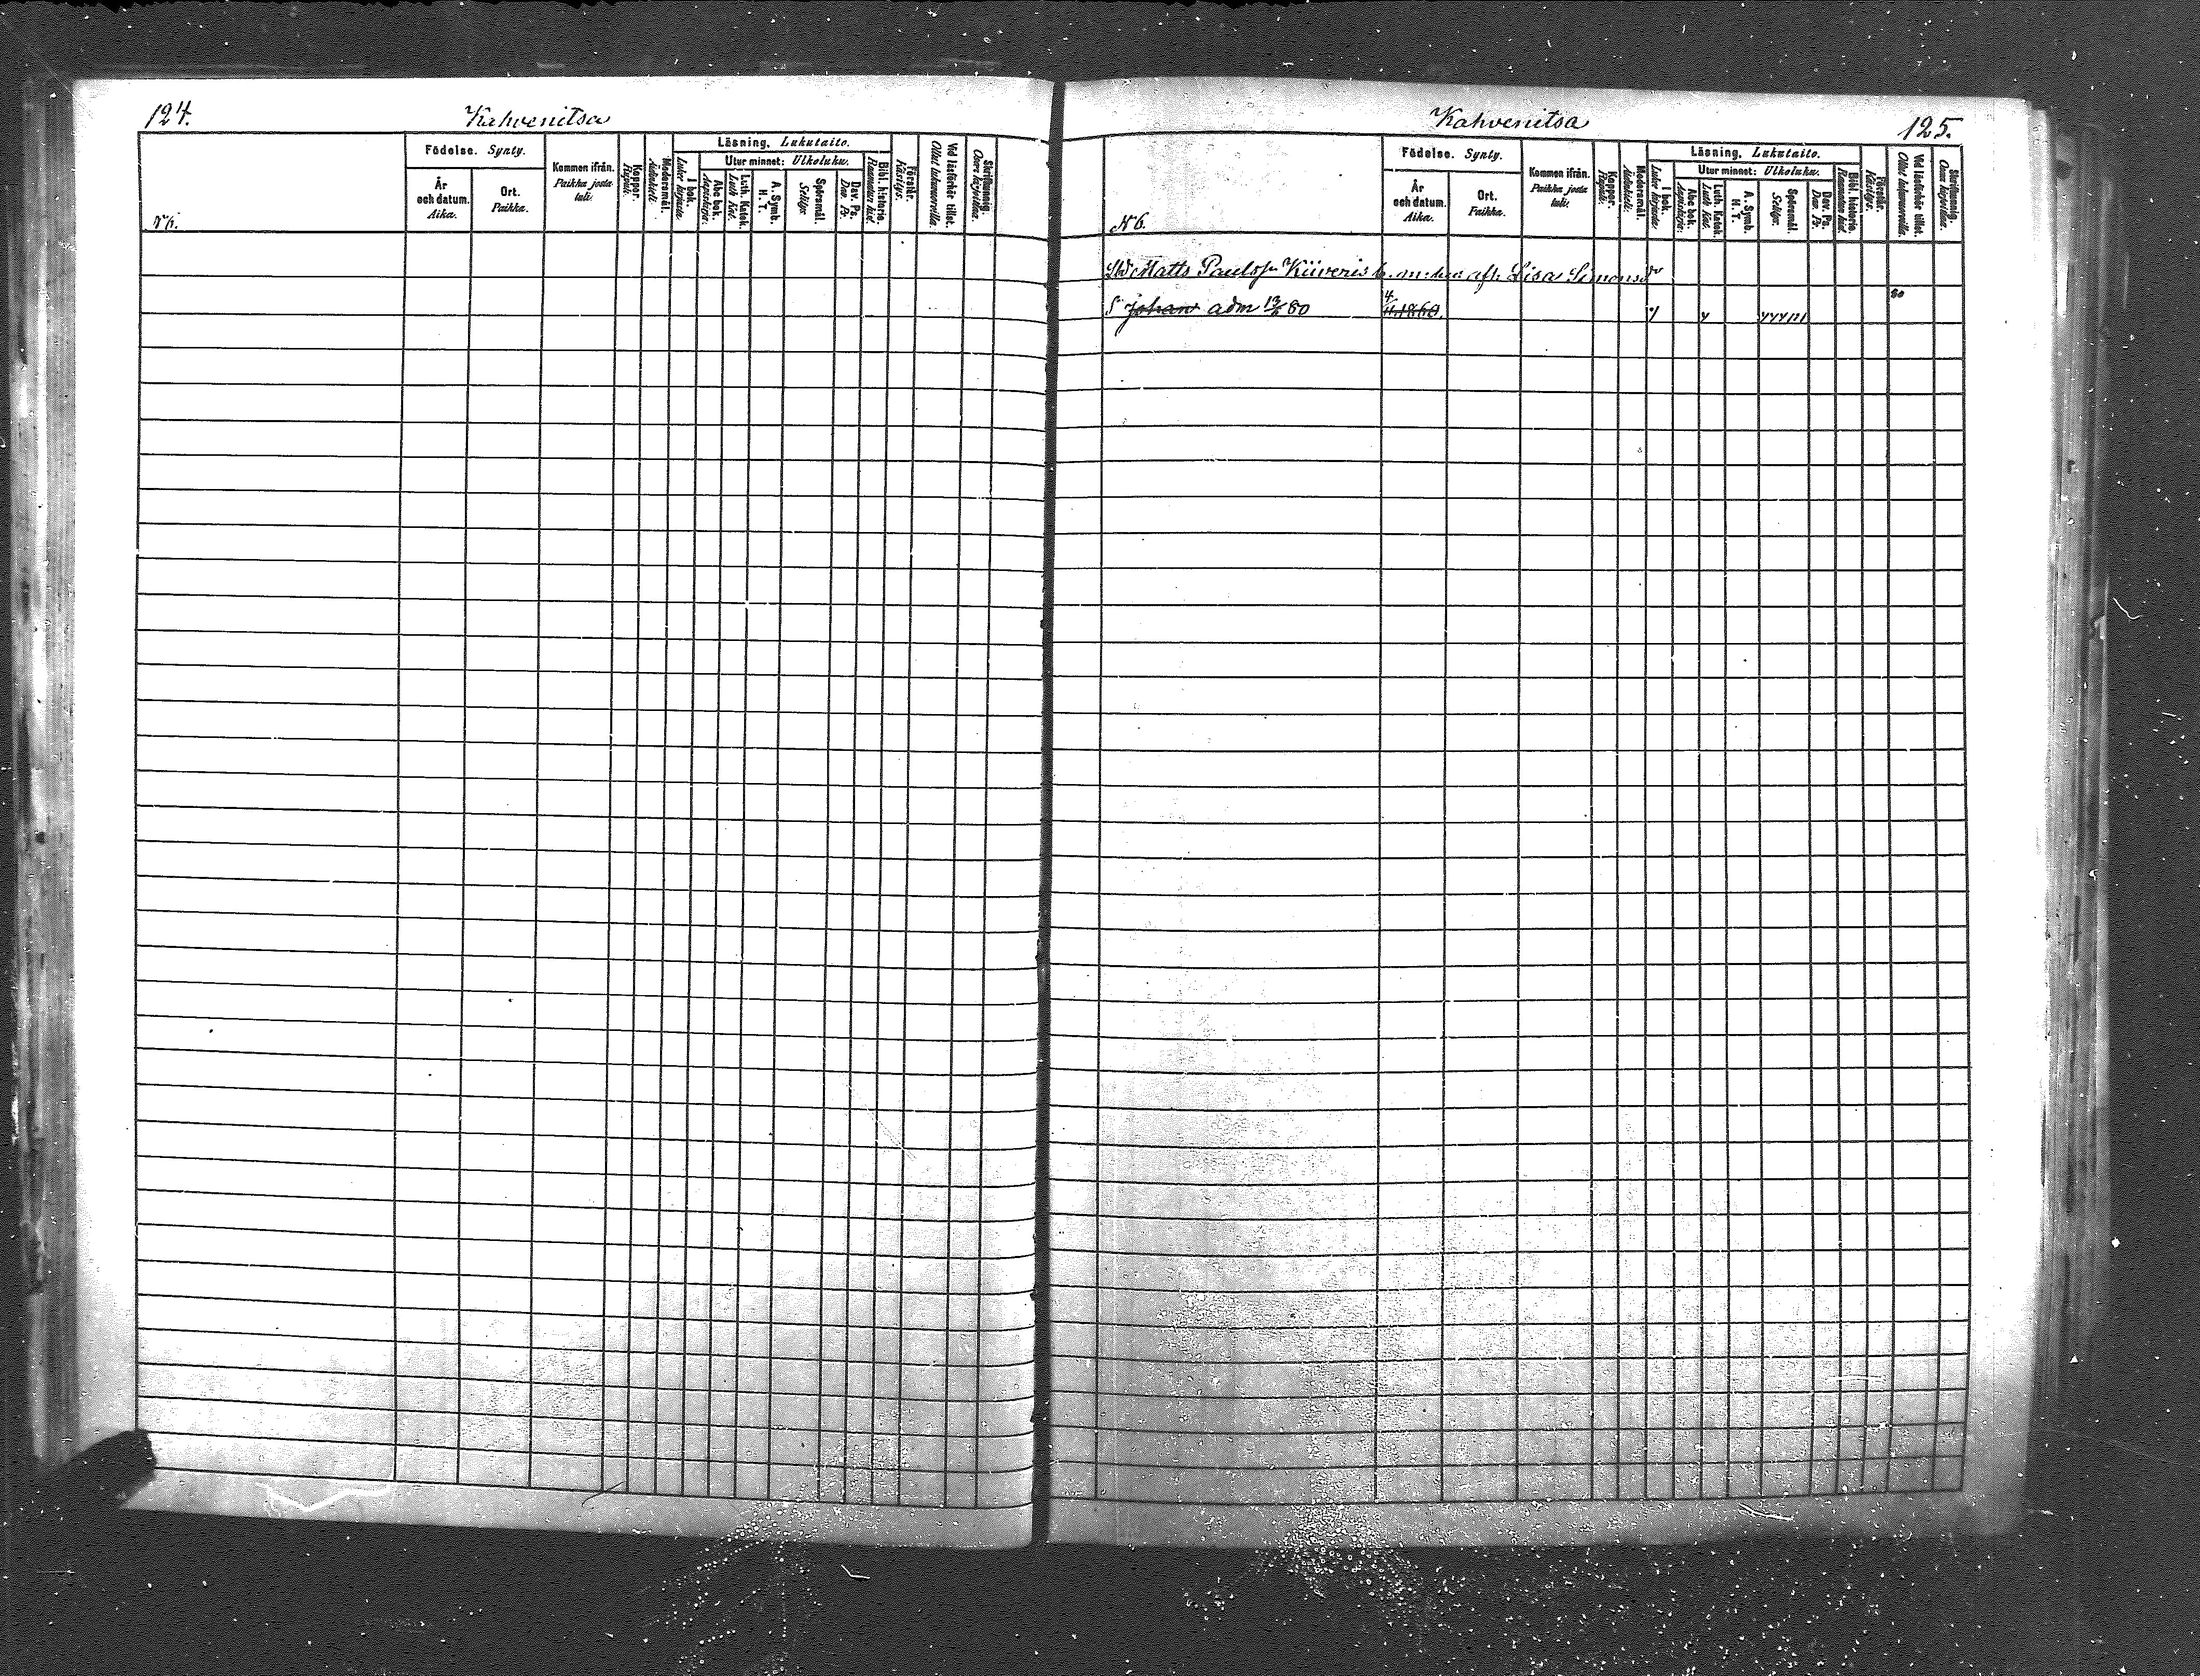 124.
Kahvenitsa
Födelse. Synty.
År och datum. Aika.
Ort. Paikka.
Kommen ifrån. Paikka josta tuli.
Koppor. Rupuli.
Modersmål. Äidinkieli.
Läsning, Lukutaito.
I bok. Lukee kirjasta.
Utur minnet: Ulkoluku.
Abc bok. Aapiskirja.
Luth. Katek. Luth. Kat.
A. Symb. H. T.
Spörsmål. Selitys.
Dav. Ps. Dav. Ps.
Bibl. historia. Raamatun hist.
Förstår. Käsitys.
Vid läsförhör tillst. Ollut lukuvuorolla.
Skriftkunnig. Osaa kirjoittaa.
N 6.
Kahvenitsa
125.
Födelse. Synty.
År och datum. Aika.
Ort. Paikka.
Kommen ifrån. Paikka josta tuli.
Koppor. Rupuli.
Modersmål. Äidinkieli.
Läsning, Lukutaito.
I bok. Lukee kirjasta.
Utur minnet: Ulkoluku.
Abc bok. Aapiskirja.
Luth. Katek. Luth. Kat.
A. Symb. H. T.
Spörsmål. Selitys.
Dav. Ps. Dav. Ps.
Bibl. historia. Raamatun hist.
Förstår. Käsitys.
Vid läsförhör tillst.
Skriftkunnig. Osaa kirjoittaa.
N 6.
Matts Paulsn Kiiveris Lisa Simonsdr
S Johan adm 80 4/11.1860. 80